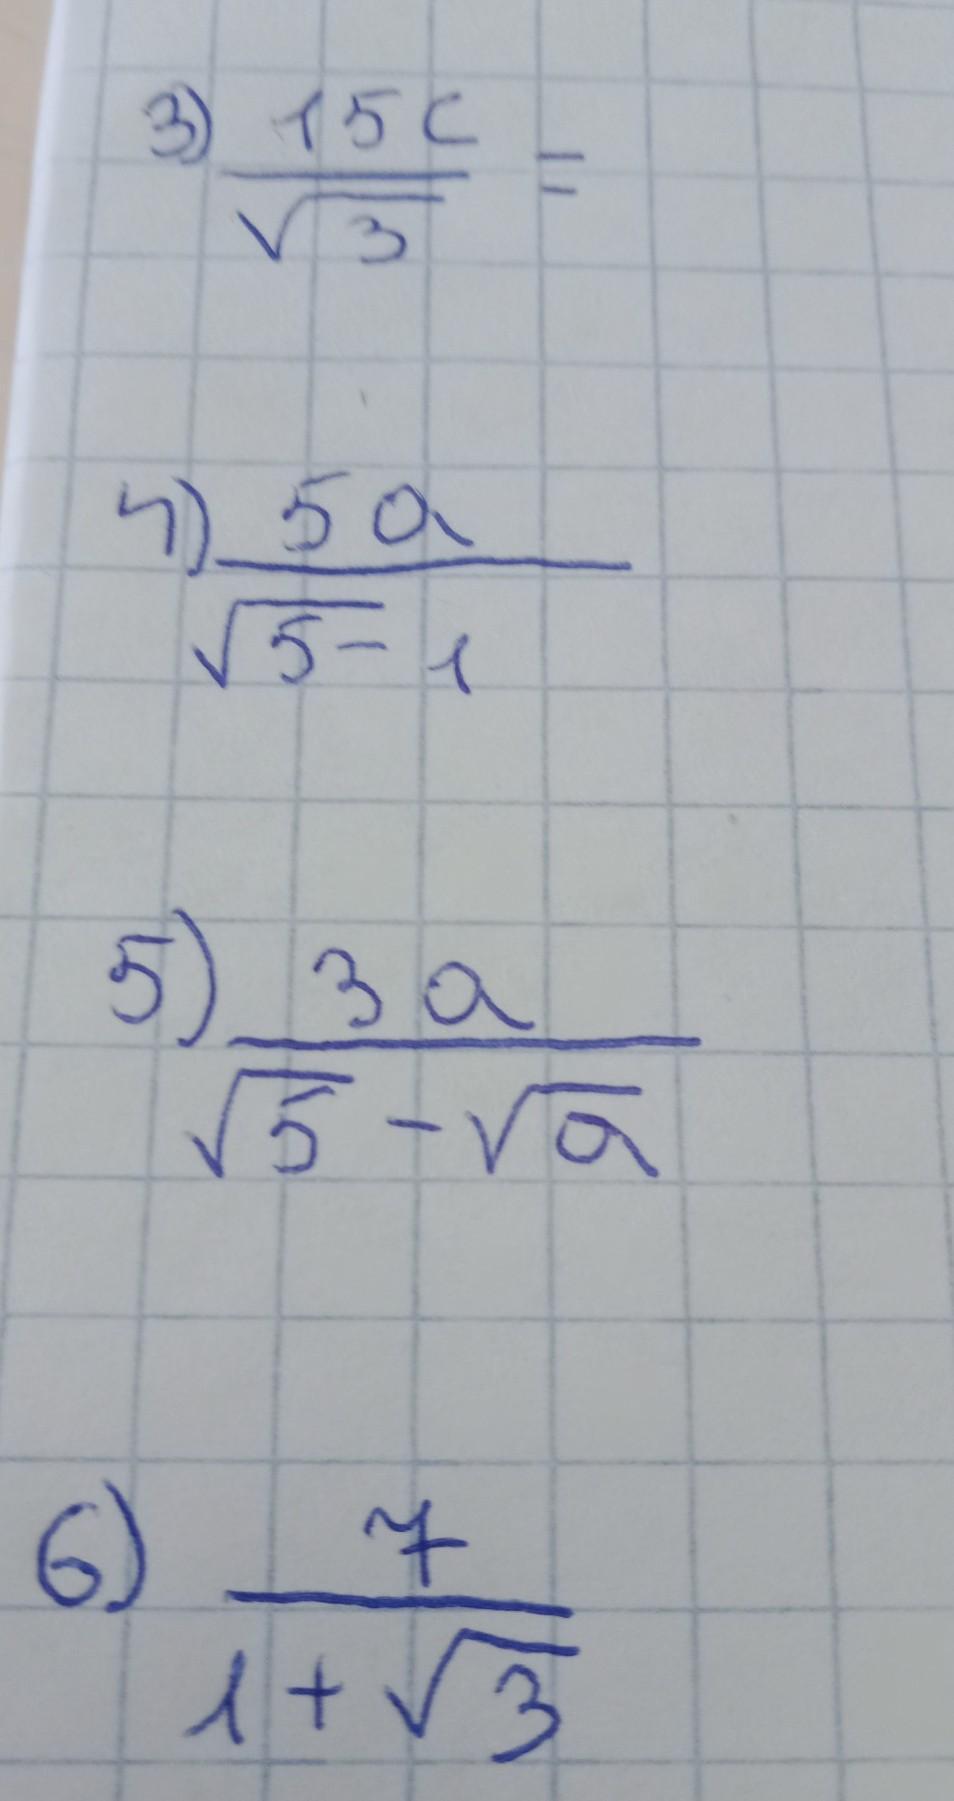 3) 15c
√3 =
4) 5a
√5 - 1
5) 3a
√5 - √a
6) 7
1 + √3